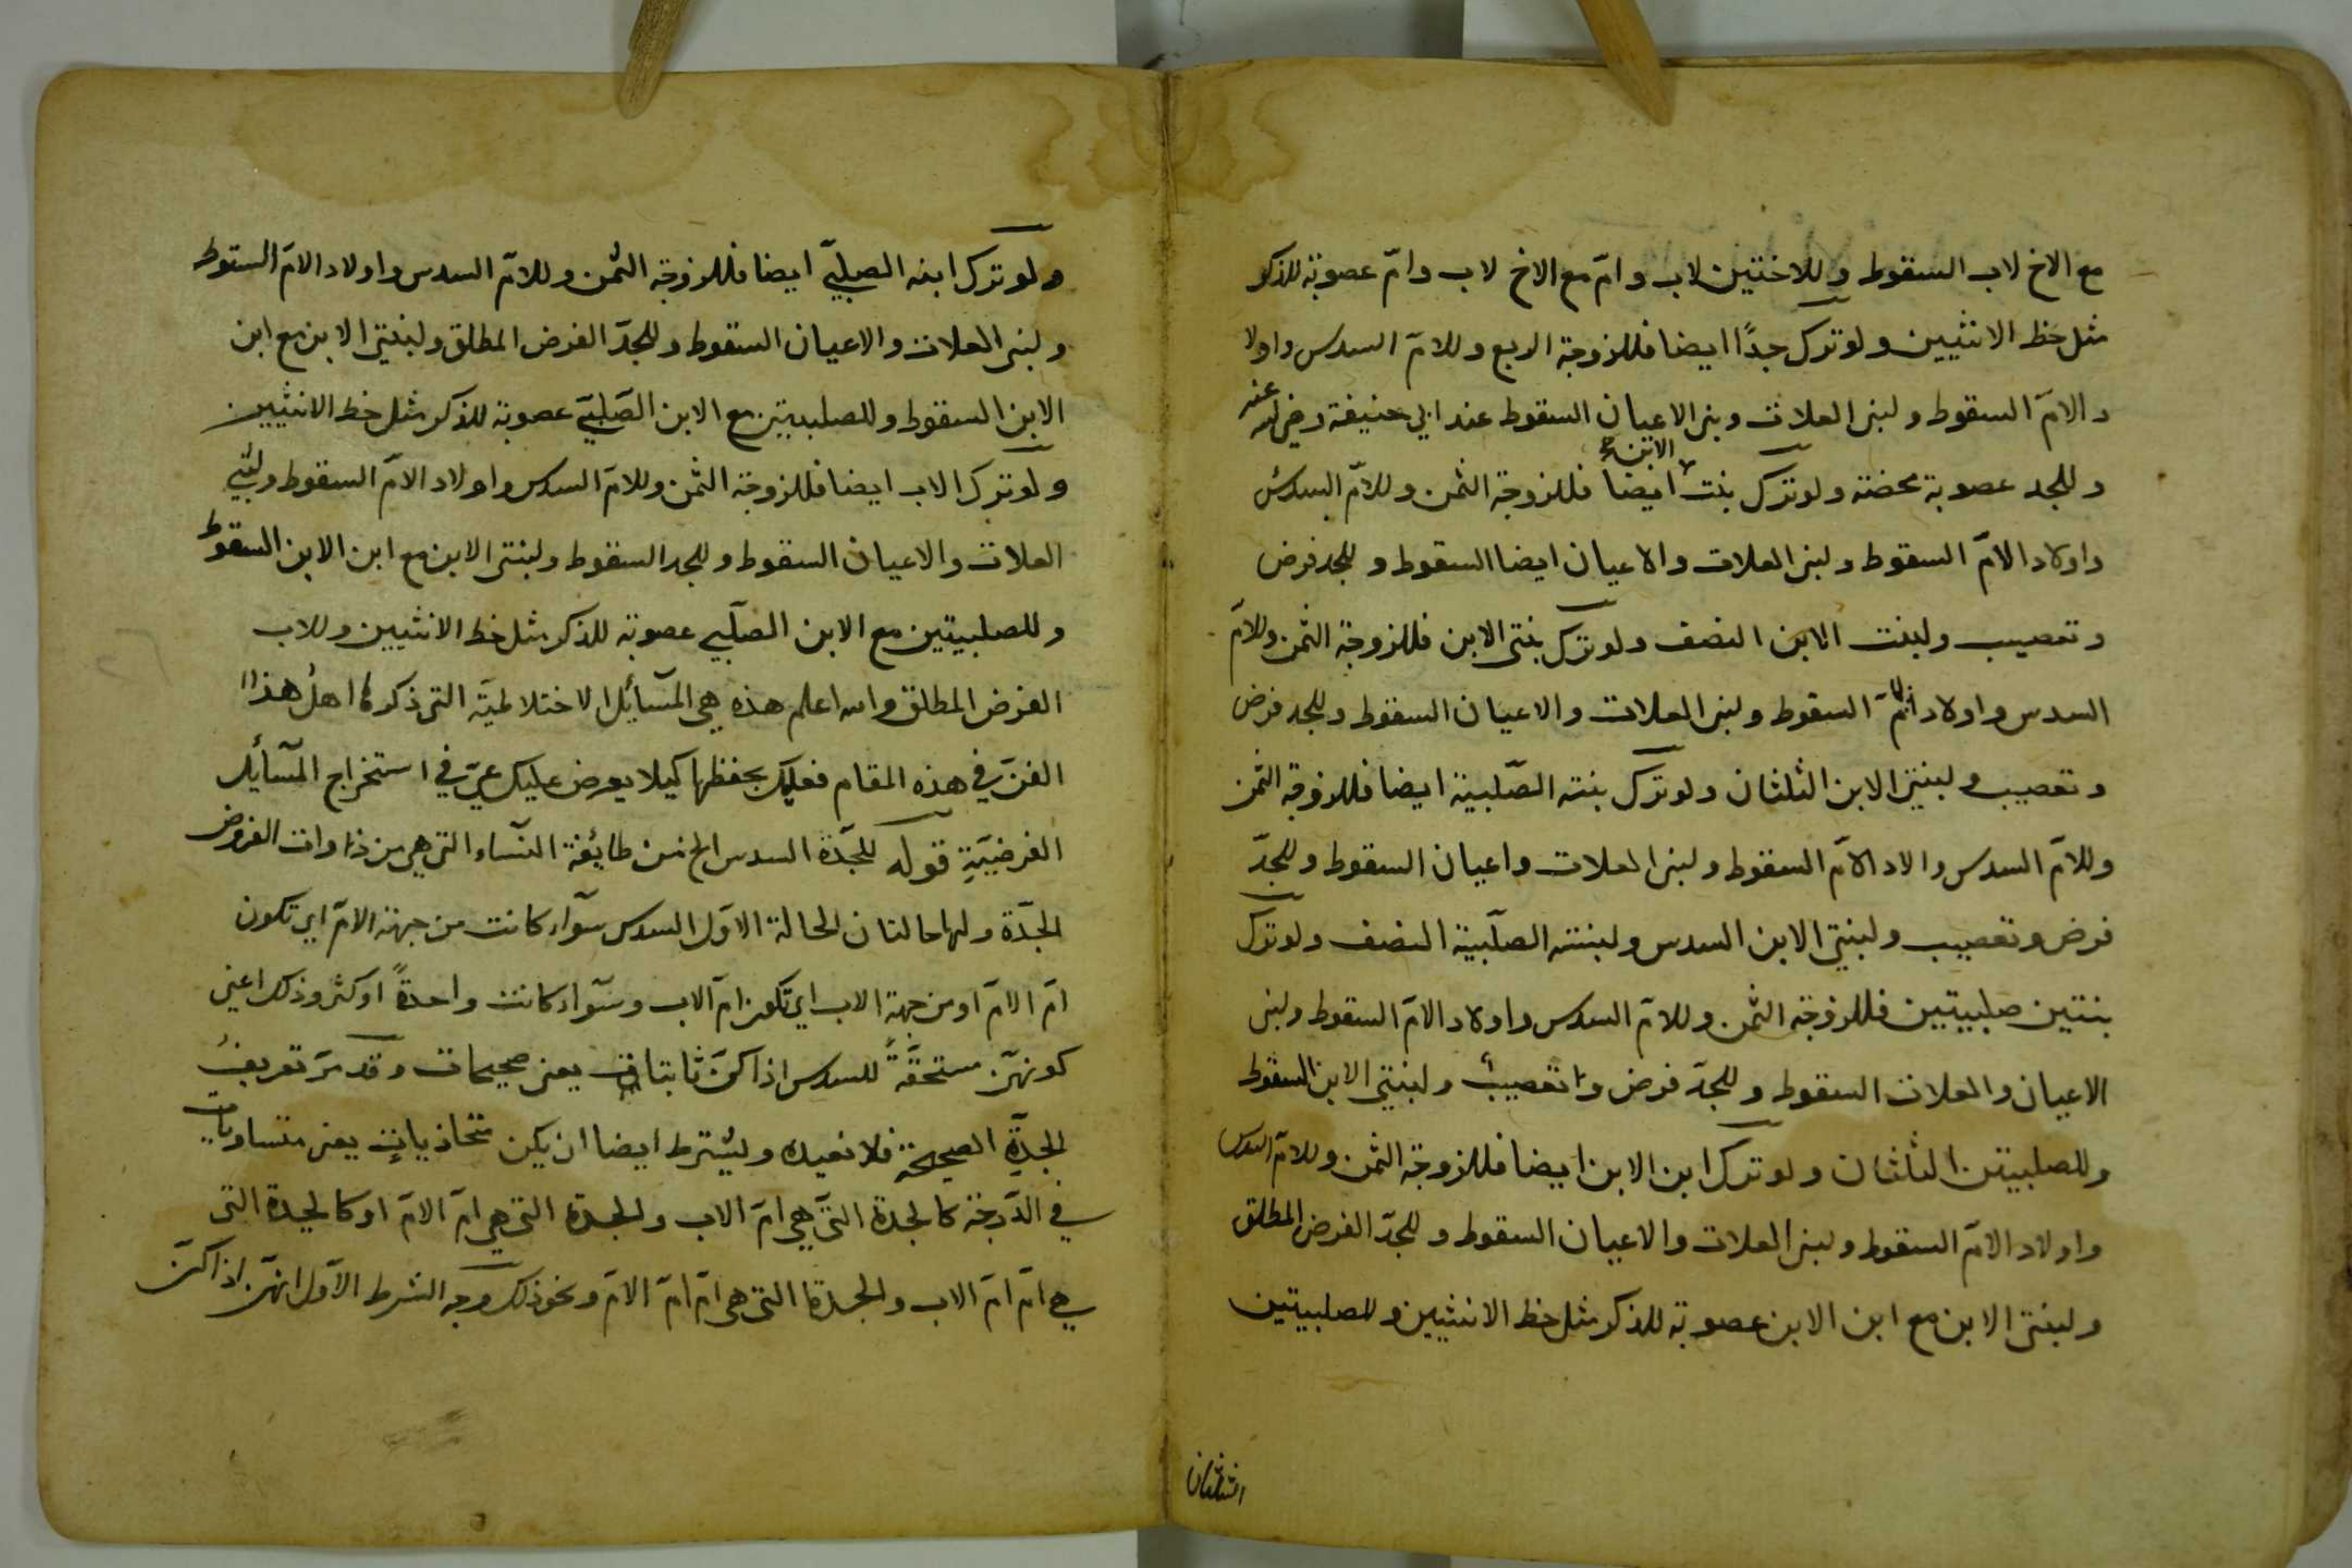 مع الاخ لاب السقوط وللاختين لاب وامّ مع الاخ لاب وامّ عصوبة للذكر
مثل حظ الانثيين ولو ترك جدًا ايضا فللزوجة الربع وللامّ السدس واولا
د الامّ السقوط ولبنى العلات وبنى الاعيان السقوط عند ابي حنيفة رضي الله عنه
وللجد عصوبة محضة ولو ترك بنت الابن ايضا فللزوجة الثمن وللامّ السدس
واولاد الامّ السقوط ولبنى العلات والاعيان ايضا السقوط وللجد فرض
وتعصيب ولبنت الابن النصف ولو ترك بنتى الابن فللزوجة الثمن وللامّ
السدس واولاد الامّ السقوط ولبنى العلات والاعيان السقوط وللجد فرض
وتعصيب ولبنتى الابن الثلثان ولو ترك بنته الصّلبية ايضا فللزوجة الثمن
وللامّ السدس والاد الامّ السقوط ولبنى العلات واعيان السقوط وللجدّ
فرض وتعصيب ولبنتي الابن السدس ولبنته الصلّبية النصف ولو ترك
بنتين صلبيتين فللزوجة الثمن وللامّ السدس واولاد الامّ السقوط ولبنى
الاعيان والعلات السقوط وللجدّ فرض وتعصيب ولبنتي الابن السقوط
وللصلبيتين الثلثان ولو ترك ابن الابن ايضا فللزوجة الثمن وللامّ السدس
واولاد الامّ السقوط ولبنى العلات والاعيان السقوط وللجدّ الفرض المطلق
ولبنتى الابن مع ابن الابن عصوبة للذكر مثل حظ الانثيين وللصلبيتين
الثلثان
ولو ترك ابنه الصلبيّ ايضا فللزوجة الثمن وللامّ السدس واولاد الامّ السقوط
ولبنى العلات والاعيان السقوط وللجدّ الفرض المطلق ولبنتي الابن مع ابن
الابن السقوط وللصلبيتين مع الابن الصّلبيّ عصوبة للذكر مثل حظ الانثيين
ولو ترك الاب ايضا فللزوجة الثمن وللامّ السدس واولاد الامّ السقوط ولبني
العلات والاعيان السقوط وللجد السقوط ولبنتى الابن مع ابن الابن السقوط
وللصلبيتين مع الابن الصلّبي عصوبة للذكر مثل حظ الانثيين وللاب
الفرض المطلق والله اعلم هذه هي المسآئل الاختلاطيّة التى ذكرها اهل هذا
الفنّ في هذه المقام فعليك بحفظها كيلا يعرض عليك عيّ في استخراج المسآئل
الفرضيّةِ قوله للجدّة السدس الخ من طائفة النسّاء التى هي من ذوات الفروض
الجدّة ولها حالتان الحالة الاوّل السدس سوآء كانت من جهة الامّ اي تكون
امّ الامّ او من جهة الاب اي تكون امّ الاب وسوآء كانت واحدةً او كثر وذلك اعني
كونهنّ مستحقّةً للسدس اذا كنّ ثابتات يعنى صحيحات وقد مرّ تعريف
الجدّةِ الصحيحة فلا نعيده ويشترط ايضا ان يكن متحاذياتٍ يعنى متساوياتٍ
في الدّرجة كالجدة التّي هي امّ الاب والجدة التى هي امّ الامّ او كالجدة التى
هي امّ امّ الاب والجدة التى هى امّ امّ الامّ ونحو ذلك وجه الشرط الاوّل انهنّ اذا كنّ